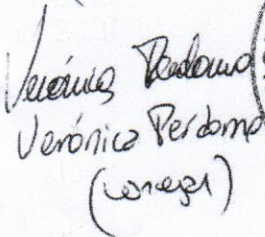 Verónica Perdomo
Verónica Perdomo
(concejal)